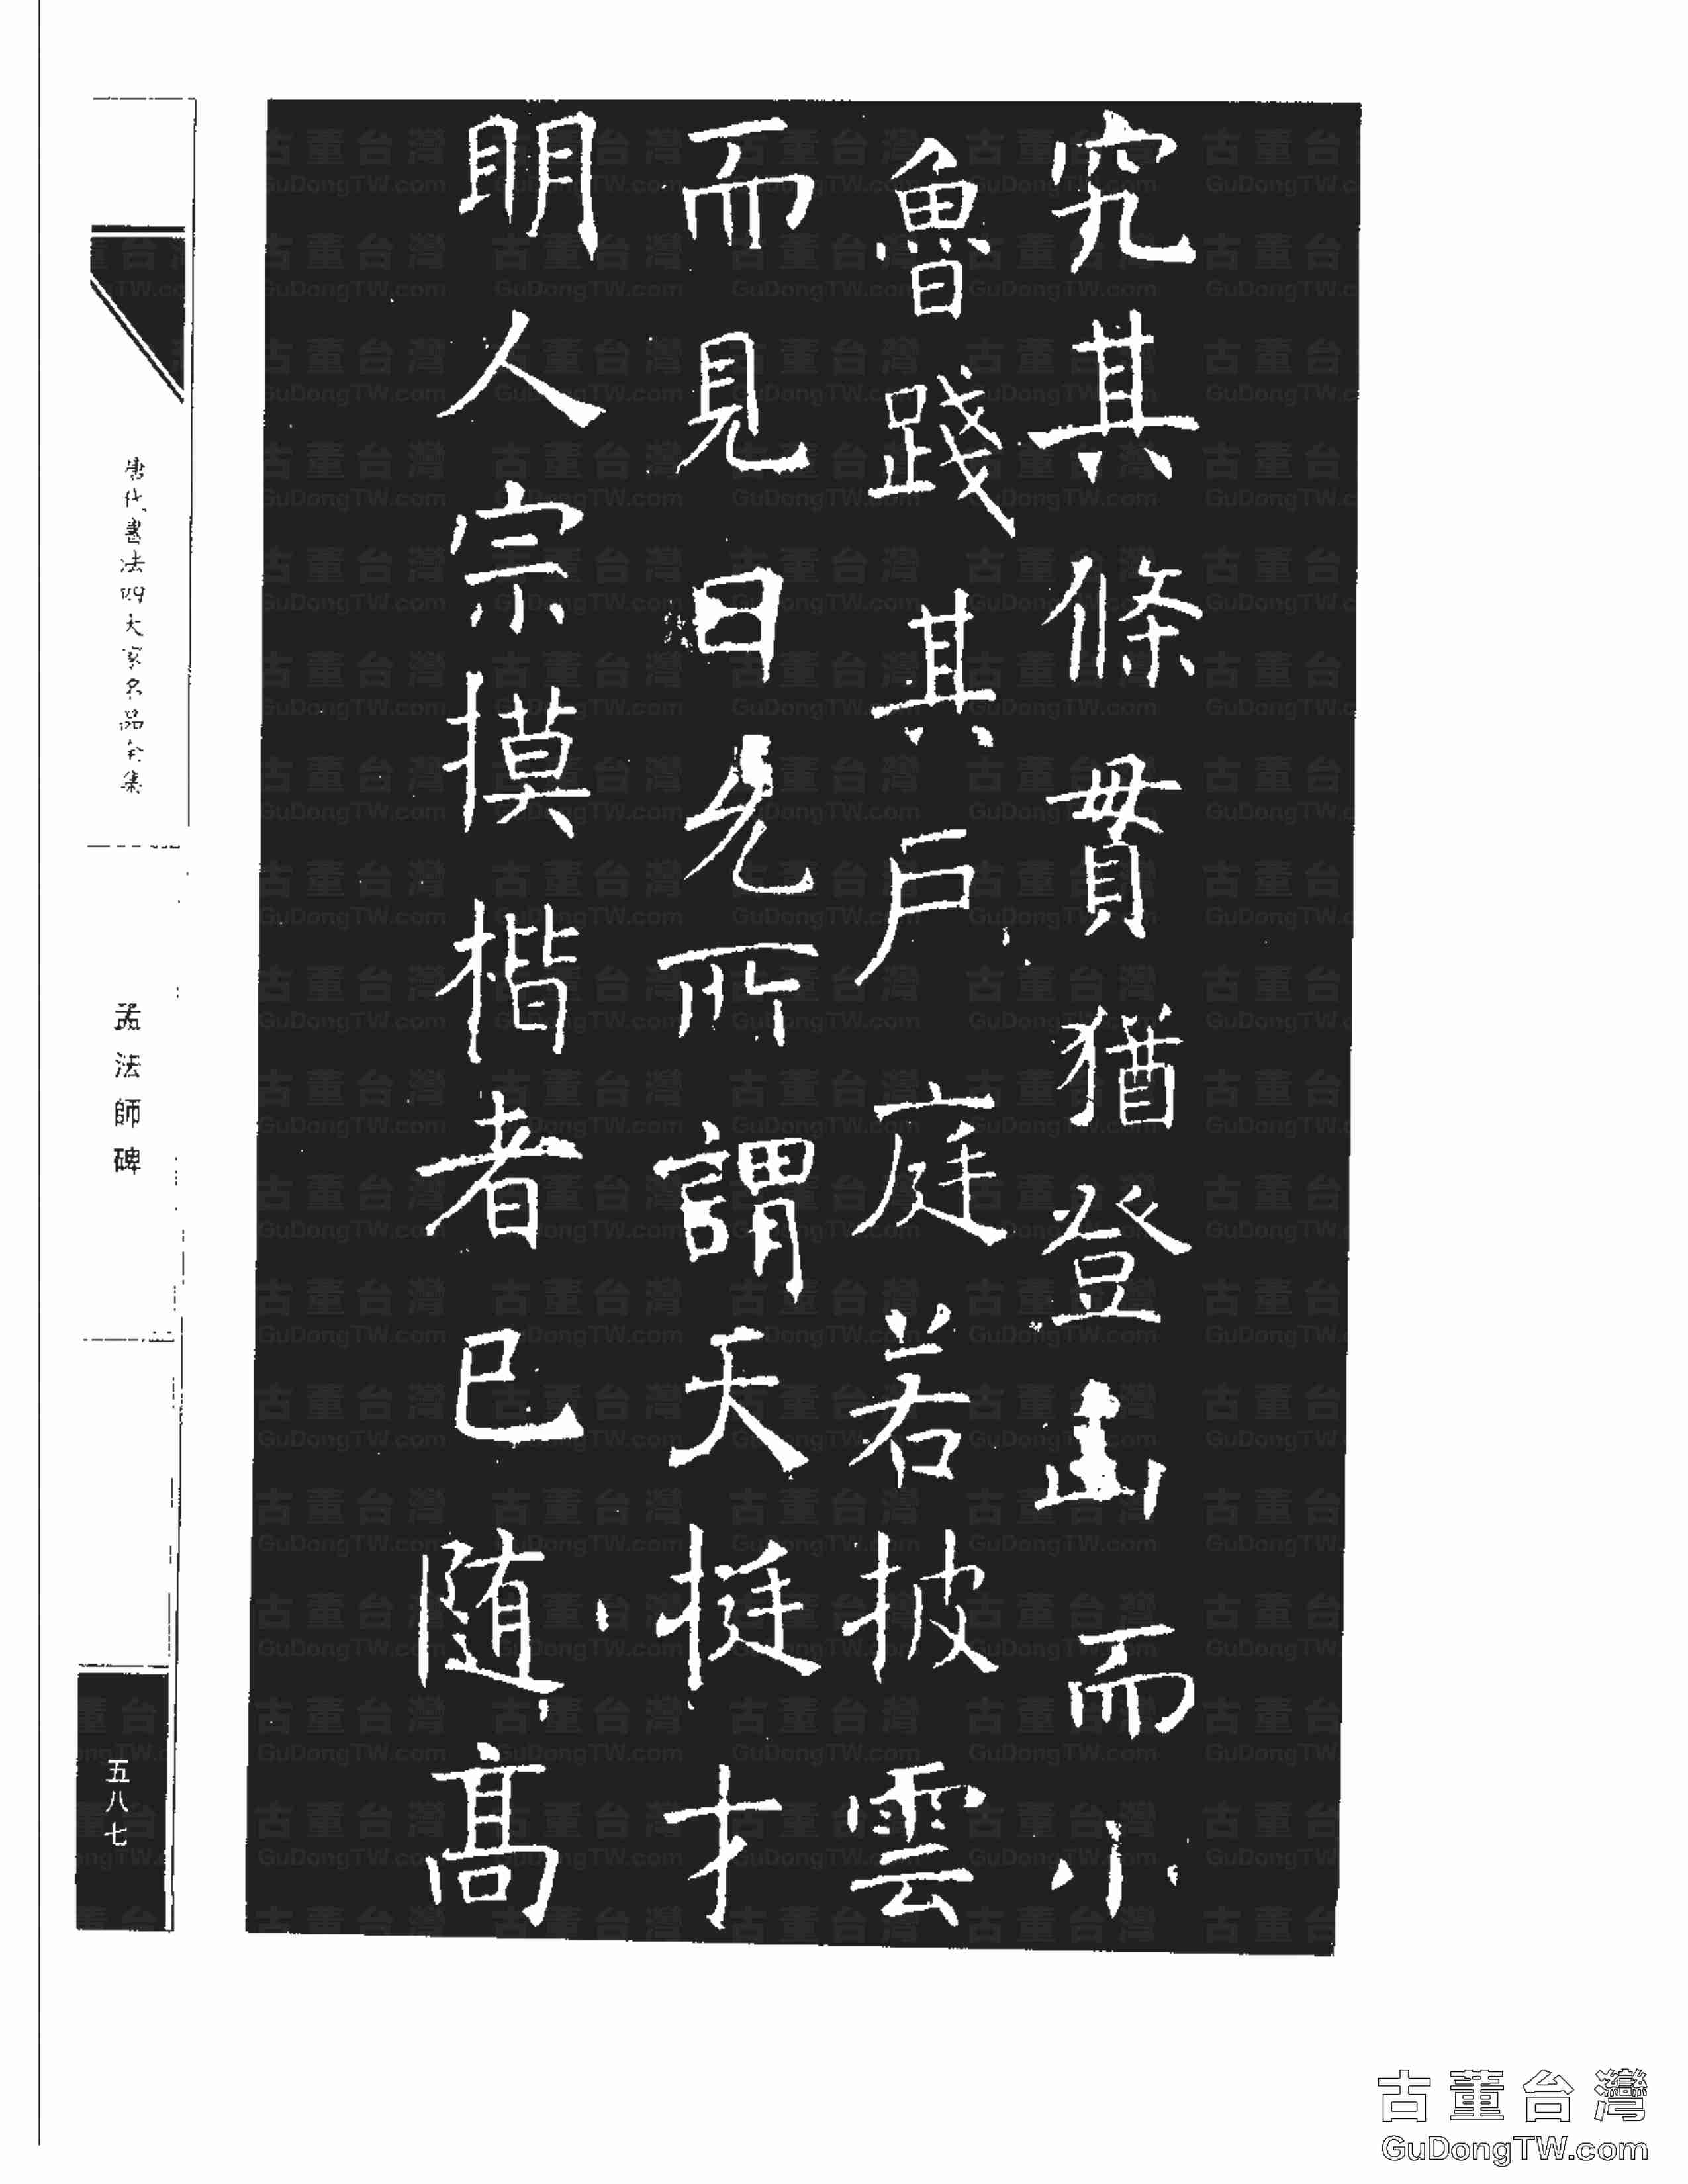 究其條貫猶登山而小
魯踐其戶庭若披雲
而見日先所謂天挺才
明人宗摸楷者已随
高
唐代書法四大家名品全集
孟法師碑
五八七
古董台灣
GuDongTW.com